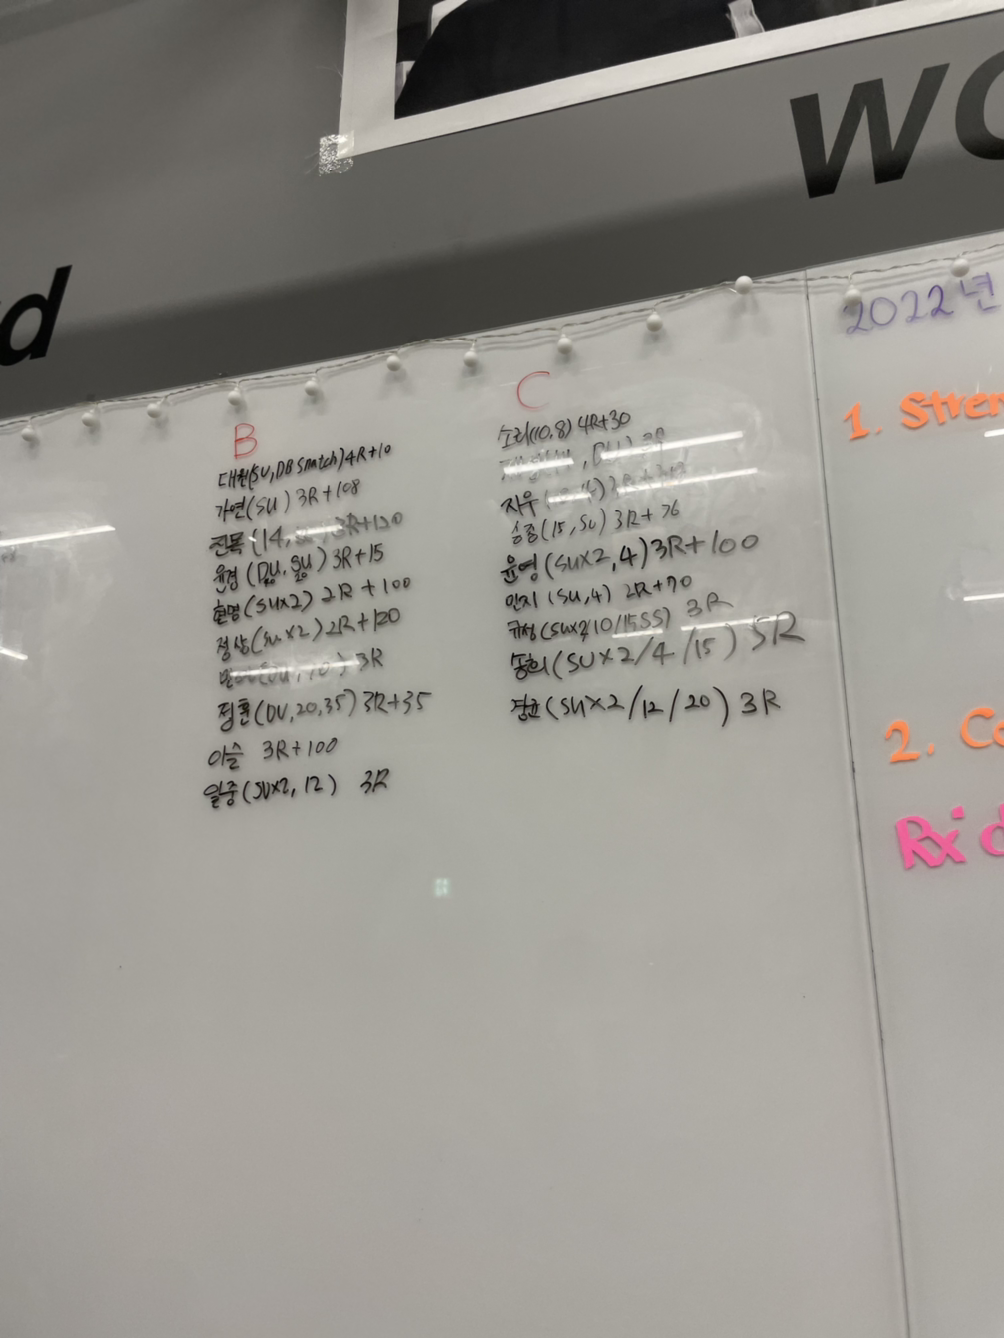 WO
d
B
대원(SU, DB Snatch) 4R+10
가연(SU) 3R+108
진목(14, 3R+120
윤경(DU, SU) 3R+15
현명(SUx2) 2R+100
정상(SUx2) 2R+120
3R
정훈(DU, 20, 35) 3R+35
이슬 3R+100
일중(SUx2, 12) 3R
C
소리(10.8) 4R+30
지우 3R+
승종(15, SU) 3R+76
윤영(SUx2, 4) 3R+100
민지(SU, 4) 2R+70
규성(SUx2/10/15SS) 3R
동희(SUx2/4/15) 5R
경균(SUx2/12/20) 3R
2022년
1. Stren
2. Co
Rx'd